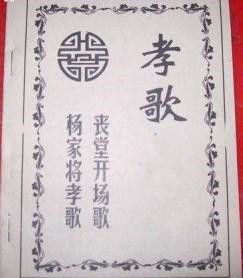 孝歌
丧堂开场歌
杨家将孝歌